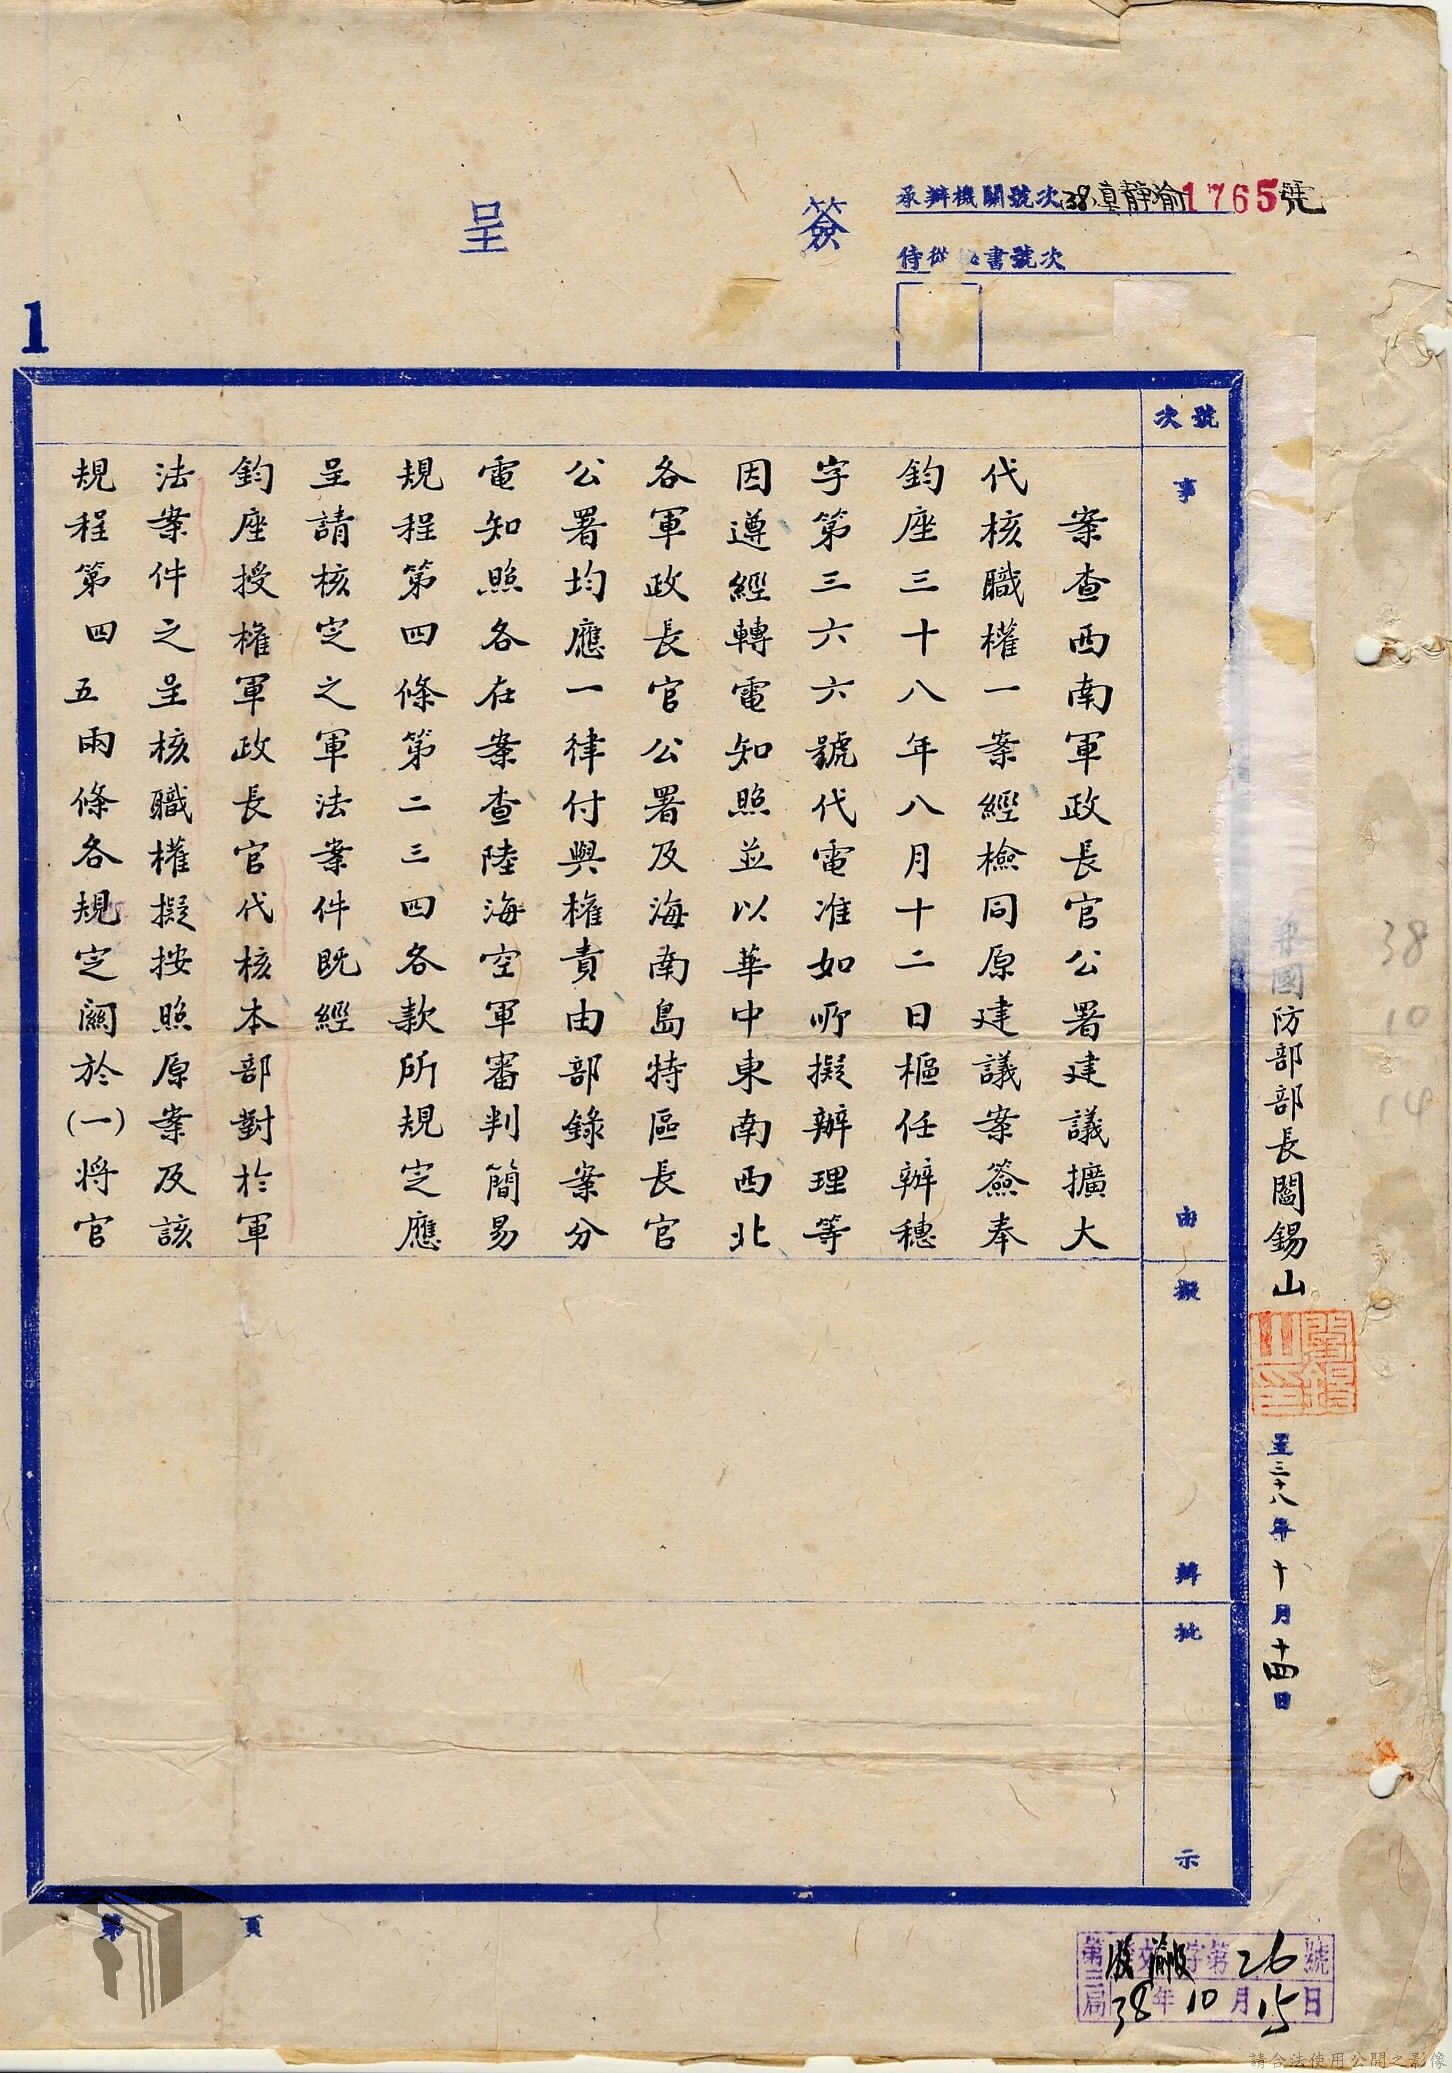 簽呈
承辦機關號次 38.真靜渝1765號
侍從 書號次
1
號次
事由
擬辦
批示
國防部部長閻錫山
閻錫山印
呈三十八年十月十四日
38
10
14
案查西南軍政長官公署建議擴大
代核職權一案經檢同原建議案簽奉
鈞座三十八年八月十二日樞任辦穗
字第三六六號代電准如所擬辦理等
因遵經轉電知照並以華中東南西北
各軍政長官公署及海南島特區長官
公署均應一律付與權責由部錄案分
電知照各在案查陸海空軍審判簡易
規程第四條第二三四各款所規定應
呈請核定之軍法案件既經
鈞座授權軍政長官代核本部對於軍
法案件之呈核職權擬按照原案及該
規程第四五兩條各規定關於(一)將官
第 頁
第三局 收 字第26號
38年10月15日
請合法使用公開之影像